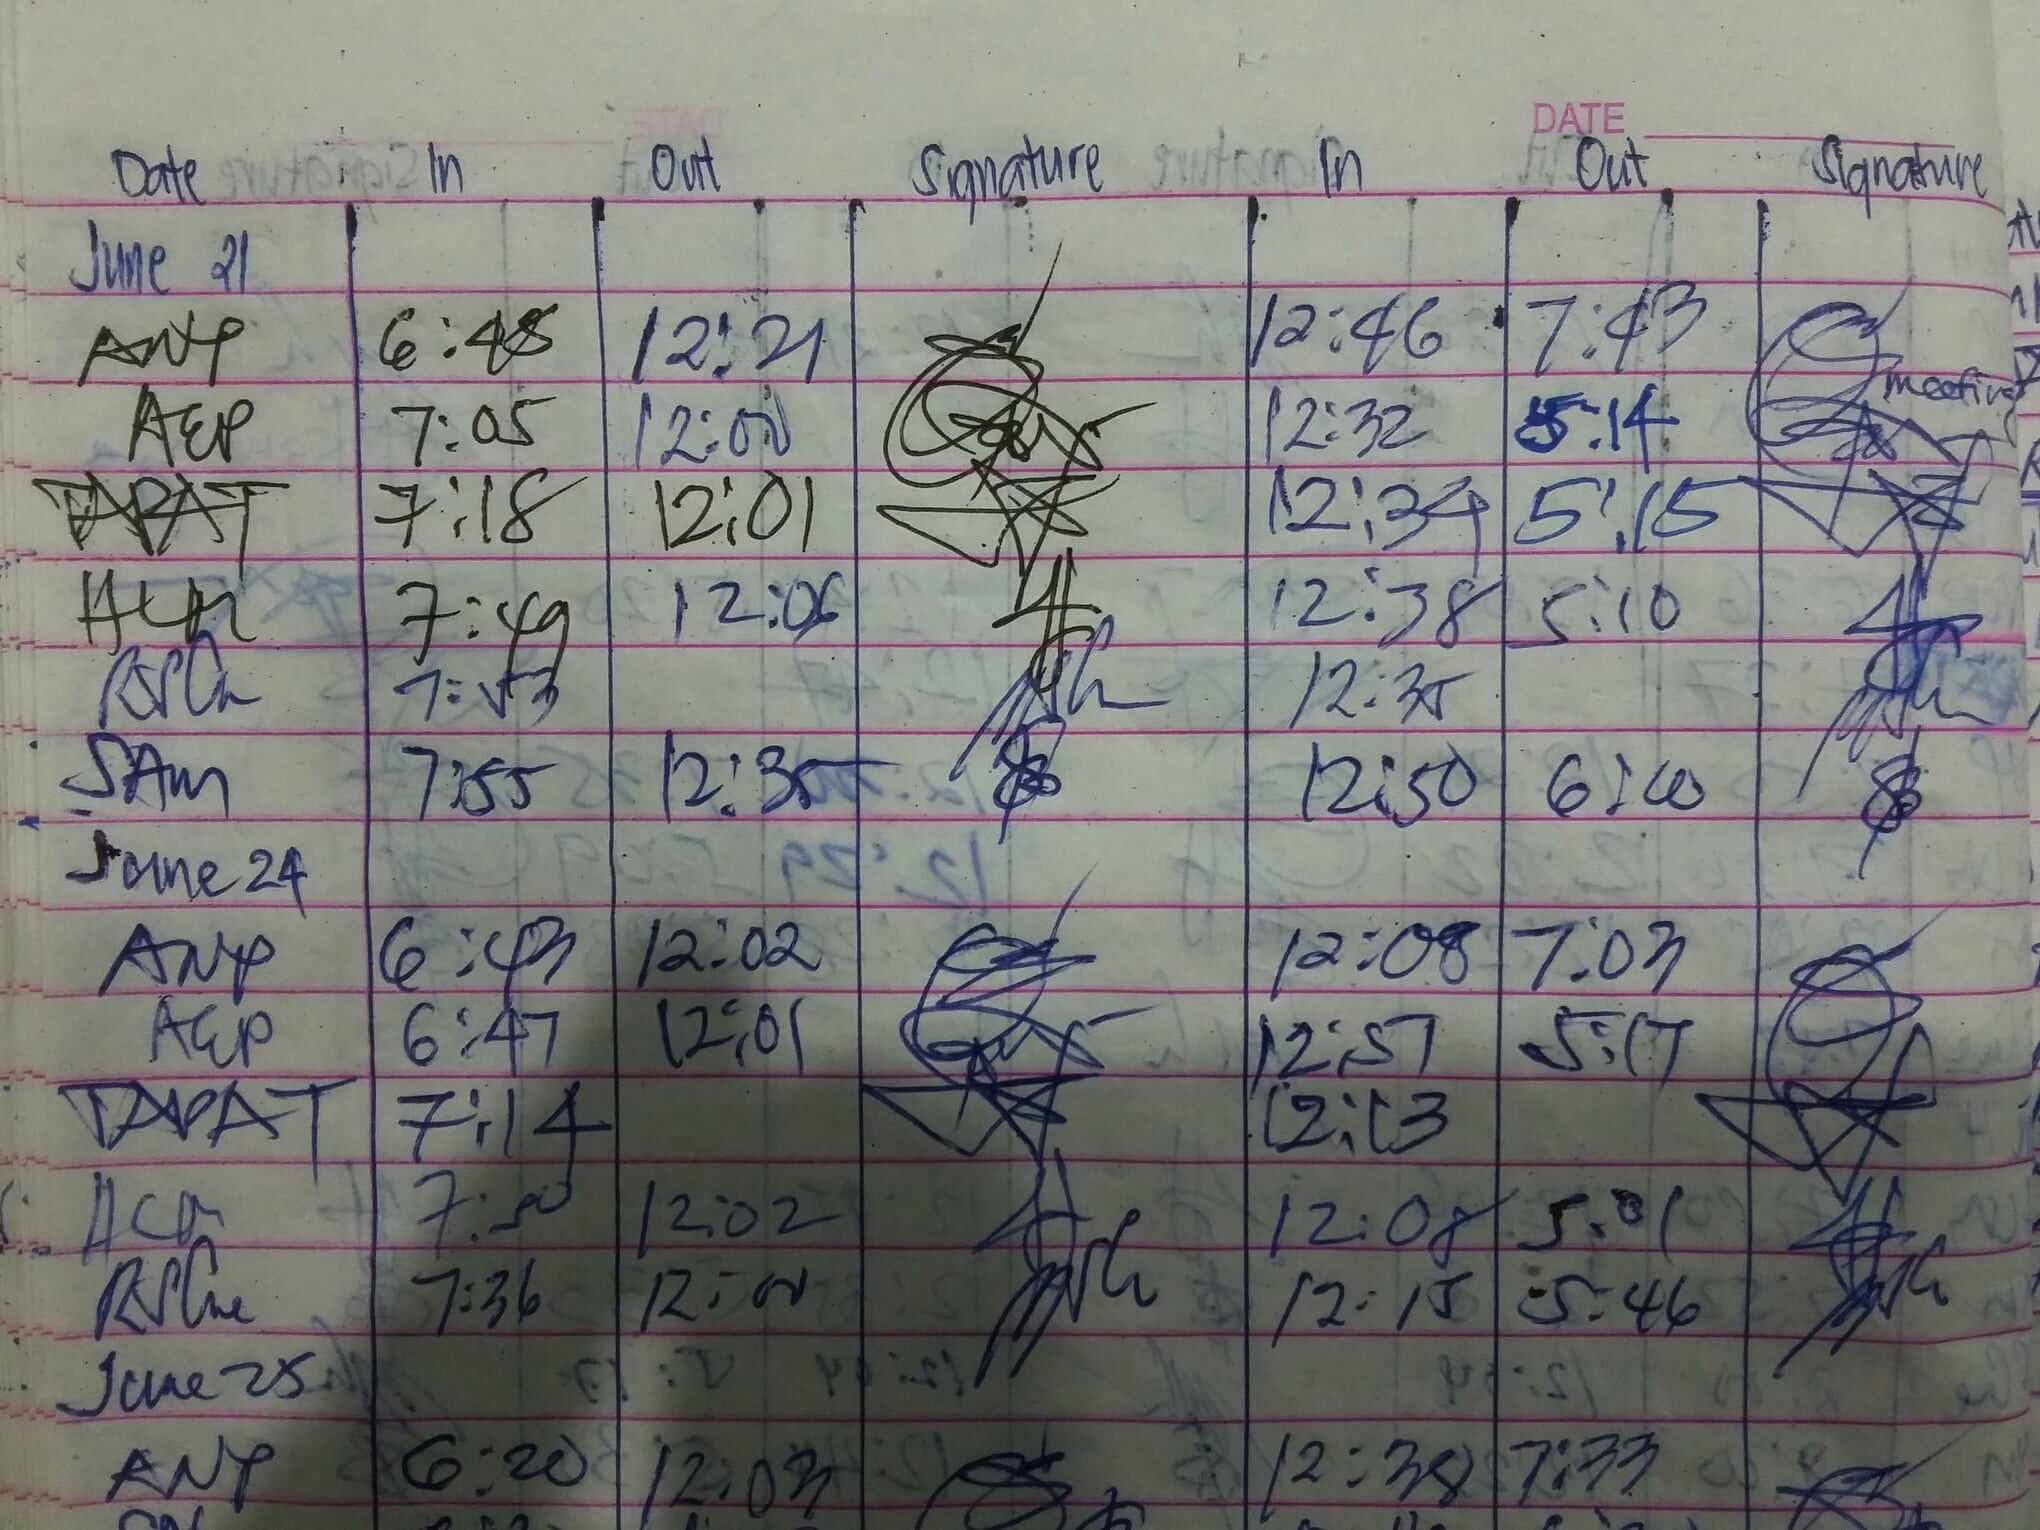 DATE
Date In Out Signature In Out Signature
June 21
ANP 6:48 12:21 12:46 7:43
meeting
AEP 7:05 12:00 12:32 5:14
TAPAT 7:18 12:01 12:34 5:15
HCM 7:49 12:06 12:38 5:10
7:53 12:35
SAM 7:55 12:35 12:50 6:00
June 24
ANP 6:43 12:02 12:08 7:03
AEP 6:47 12:01 12:57 5:17
TAPAT 7:14 12:13
HCM 7:50 12:02 12:08 5:01
7:36 12:00 12:15 5:46
June 25
ANP 6:20 12:03 12:38 7:33